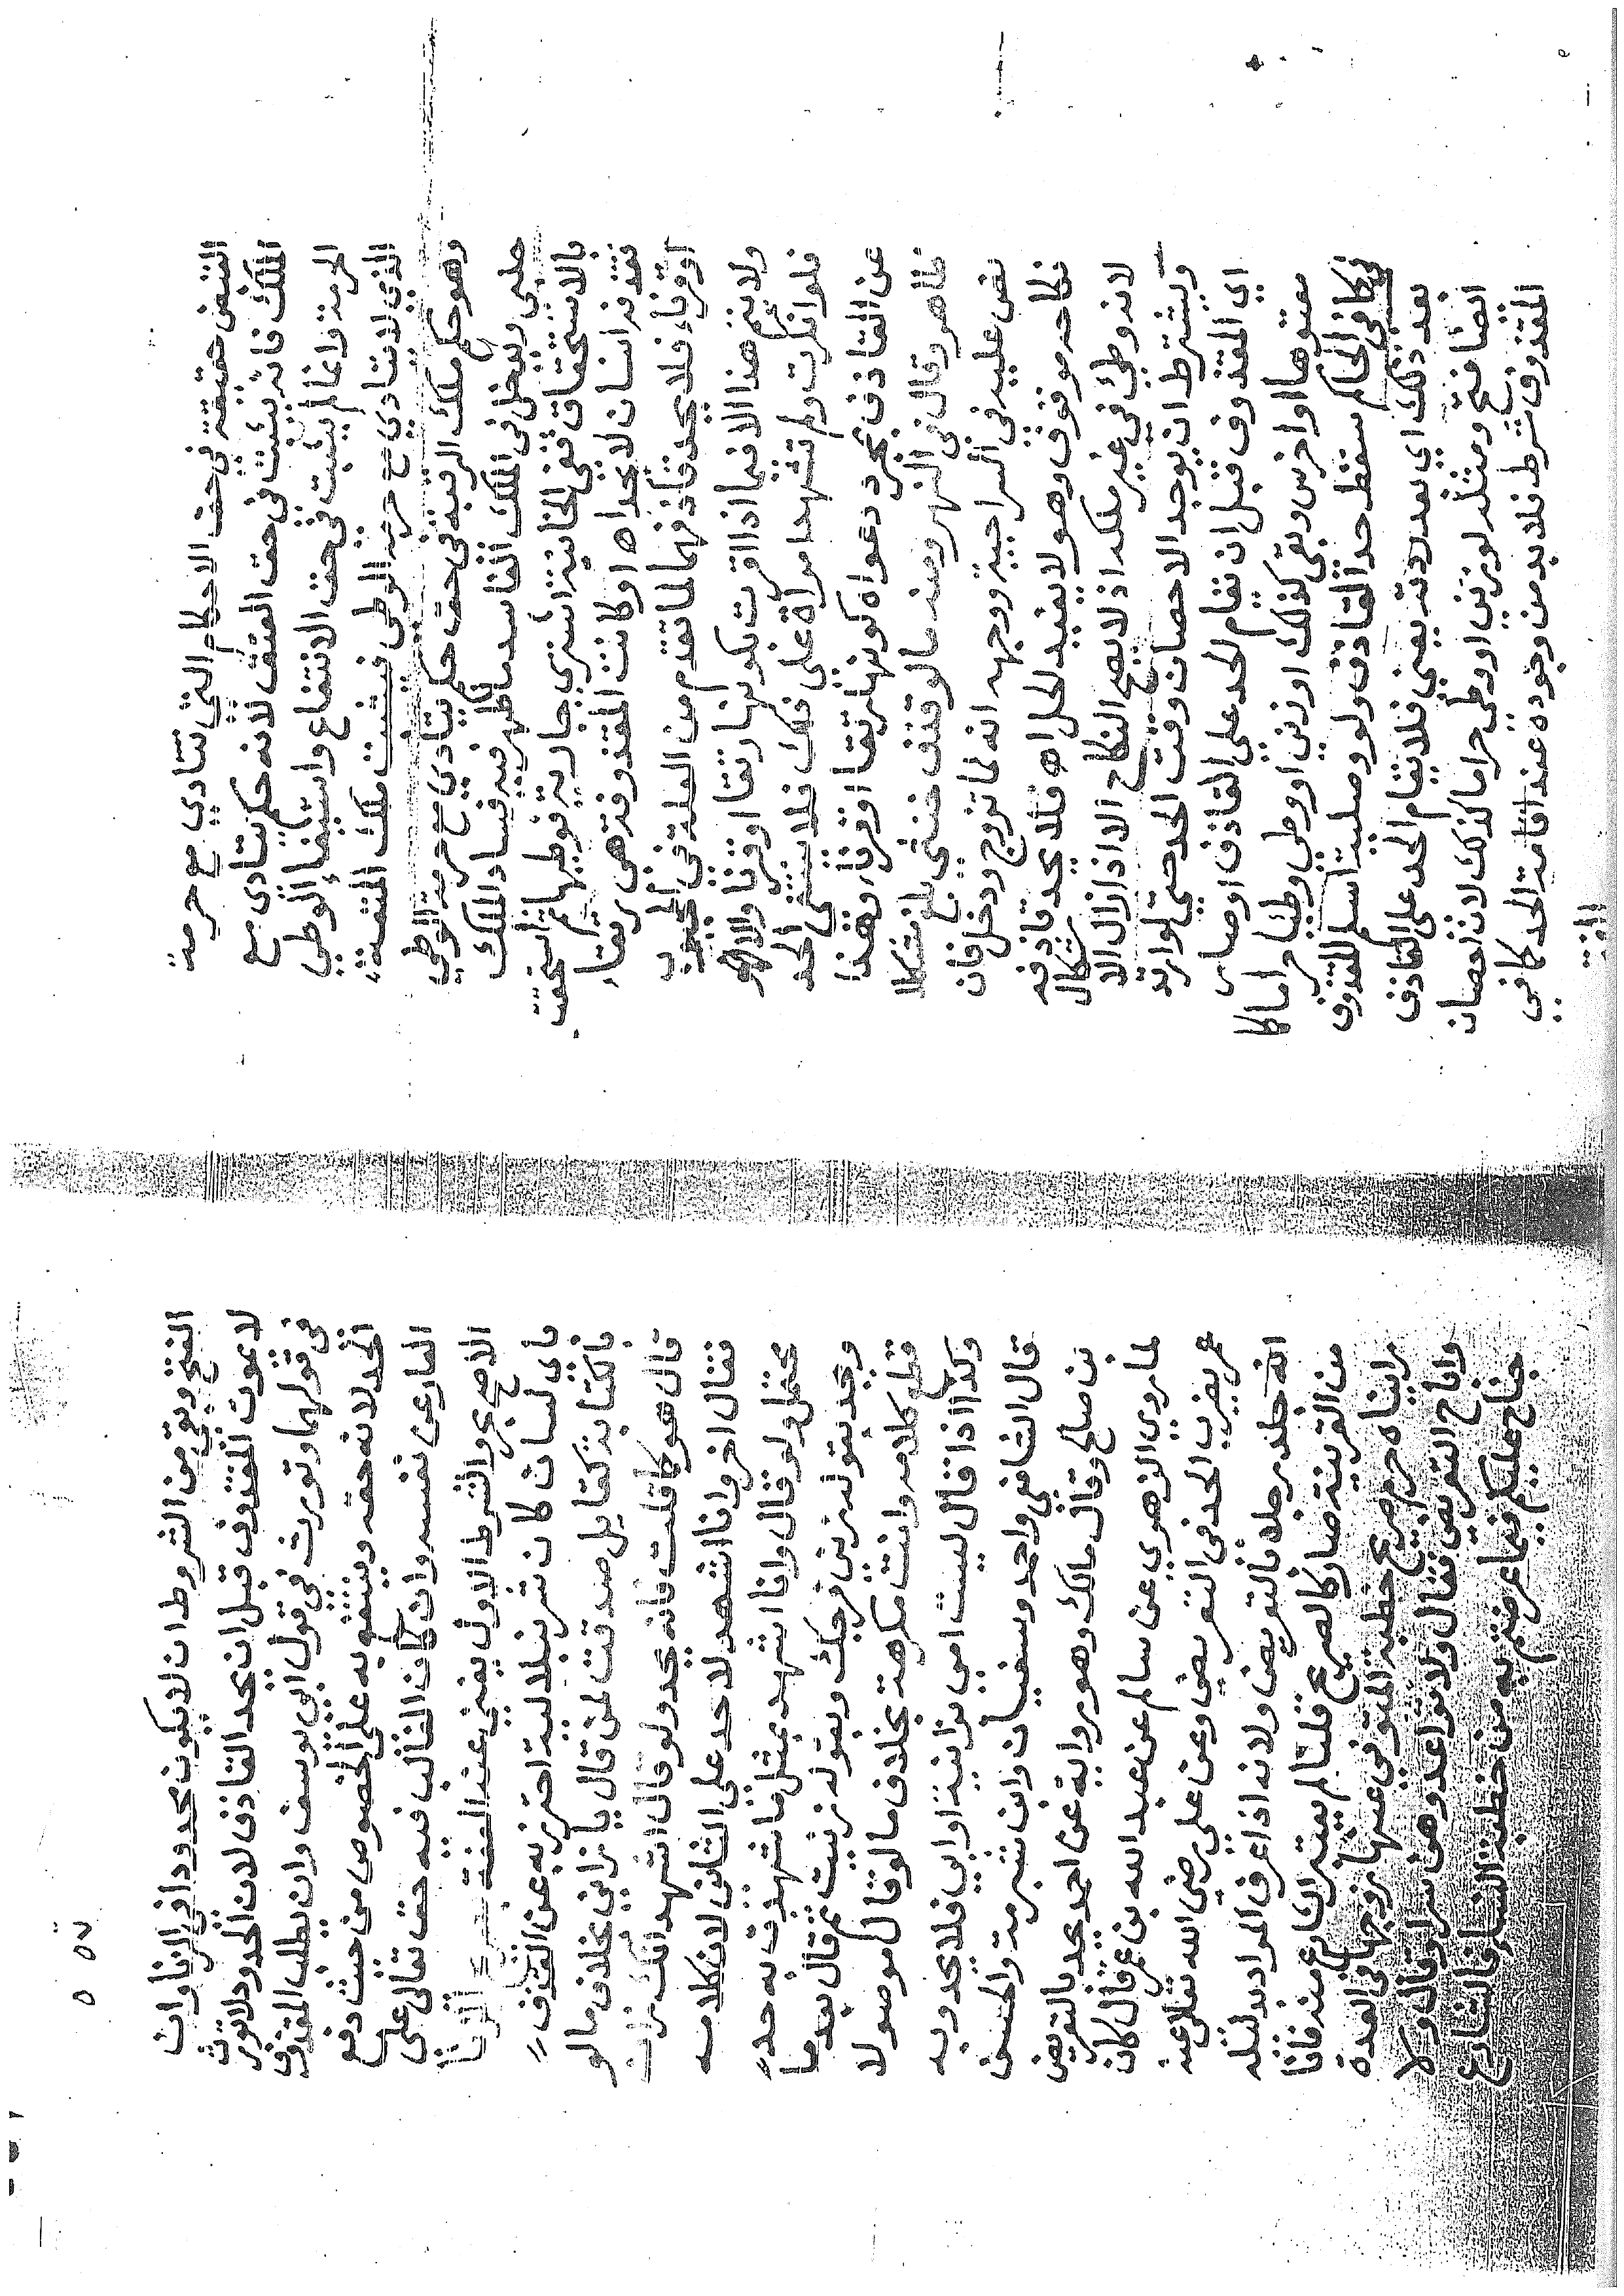 النقض حقيقة في حق الاحكام التي تتادي مع حرمة
الملك فانه يثبت في حق العتق لانه حكم يتادى مع
الحرمة وانما لم يثبت في حق الانتفاع واستيفاء الوطي
الذي لا يتادي مع حرمة الوطي فيثبت ملك المتعة
وهو حكم ملك الرقبة في حق حكم يتادي مع حرمة الوطي
حلبي ويدخل في الملك الفاسد ما ظهر فيه فساد الملك
بالاستحقاق ففي الخانية اشترى جارية فوطيها ثم استحقت
فقذفه انسان لا يحد اه او كانت المقذوفة هي رتقاء
او قرناء فلا يحد قاذفهما لما تقدم من العلة في المجبوب
ولا يتم هذا الا فيما اذا اقرت بكونها رتقا او قرنا والا
فلو انكرت ولم تشهد امراة على فلا ينتفي الحد
عن القاذف بمجرد دعواه كونها رتقا او قرنا وهذا
ظاهر وقال في النهر ومنه ما لو قذف خنثى بلغ مشكلا
نص عليه في السراجية ووجهه انه لما تزوج ودخل فان
نكاحه موقوف وهو لا يفيد الحل اه فلا يحد قاذفه
لانه وطئ في غير ملكه اذ لا يصح النكاح الا اذا زال الاشكال
ويشترط ان يوجد الاحصان وقت الحد حتى لو ارتد
اي المقذوف قبل ان يقام الحد على القاذف او صار
معتوها او اخرس وبقي كذلك او زني او وطي وطيا حراما كما
في كافي الحاكم سقط حد القاذف ولو وصلية اسلم المقذوف
بعد ذلك اي بعد ردته يعني فلا يقام الحد على القاذف
ايضا فتح ومثله لو زنى او وطى حراما كذلك لان احصان
المقذوف شرط فلا بد من وجوده عند اقامة الحد كما في
الفتح
٥٧
الفتح وبقي من الشروط ان لا يكون محدودا في الزنا وان
لا يموت المقذوف قبل ان يحد القاذف لان الحدود لا تورث
في قولهما وتورث في قول ابي يوسف وان يطلب المقذوف
الحد لانه حقه وينتفع به على الخصوص من حيث دفع
العار عن نفسه وان كان الغالب فيه حق الله تعالى على
الاصح بحر والشرط الاول يغني عنه العفة بصريح الزنا
باي لسان كان شرنبلالية احترز به عن القذف
بالكتابة كقايل صدقت لمن قال يا زاني بخلاف ما لو
قال هو كما قلت فانه يحد ولو قال اشهد انك زان
فقال اخر وانا اشهد لا حد على الثاني لان كلامه
محتمل ولو قال وانا اشهد بمثل ما شهدت به حد
ويحد بقوله زنى فرجك وبقوله زنيت ثم قال بعد ما
قطع كلامه وانت مكرهة بخلاف ما لو قال موصولا
وكذا اذا قال ليست امي بزانية او ابي فلا يحد وبه
قال الشافعي واحمد وسفيان وابن شبرمة والحسن
بن صالح وقال مالك وهو رواية عن احمد يحد بالتعريض
لما روي الزهري عن سالم عن عبد الله بن عمر قال كان
عمر يضرب الحد في التعريض وعن علي رضي الله تعالى عنه
انه جلد رجلا بالتعريض ولانه اذا عرف المراد بدليله
من القرينة صار كالصريح قلنا لم يعتبر الشارع مثله فانا
رايناه حرم صريح خطبة المتوفى عنها زوجها في العدة
واباح التعريض فقال ولا تواعدوهن سرا وقال ولا
جناح عليكم فيما عرضتم به من خطبة النساء فالشارع